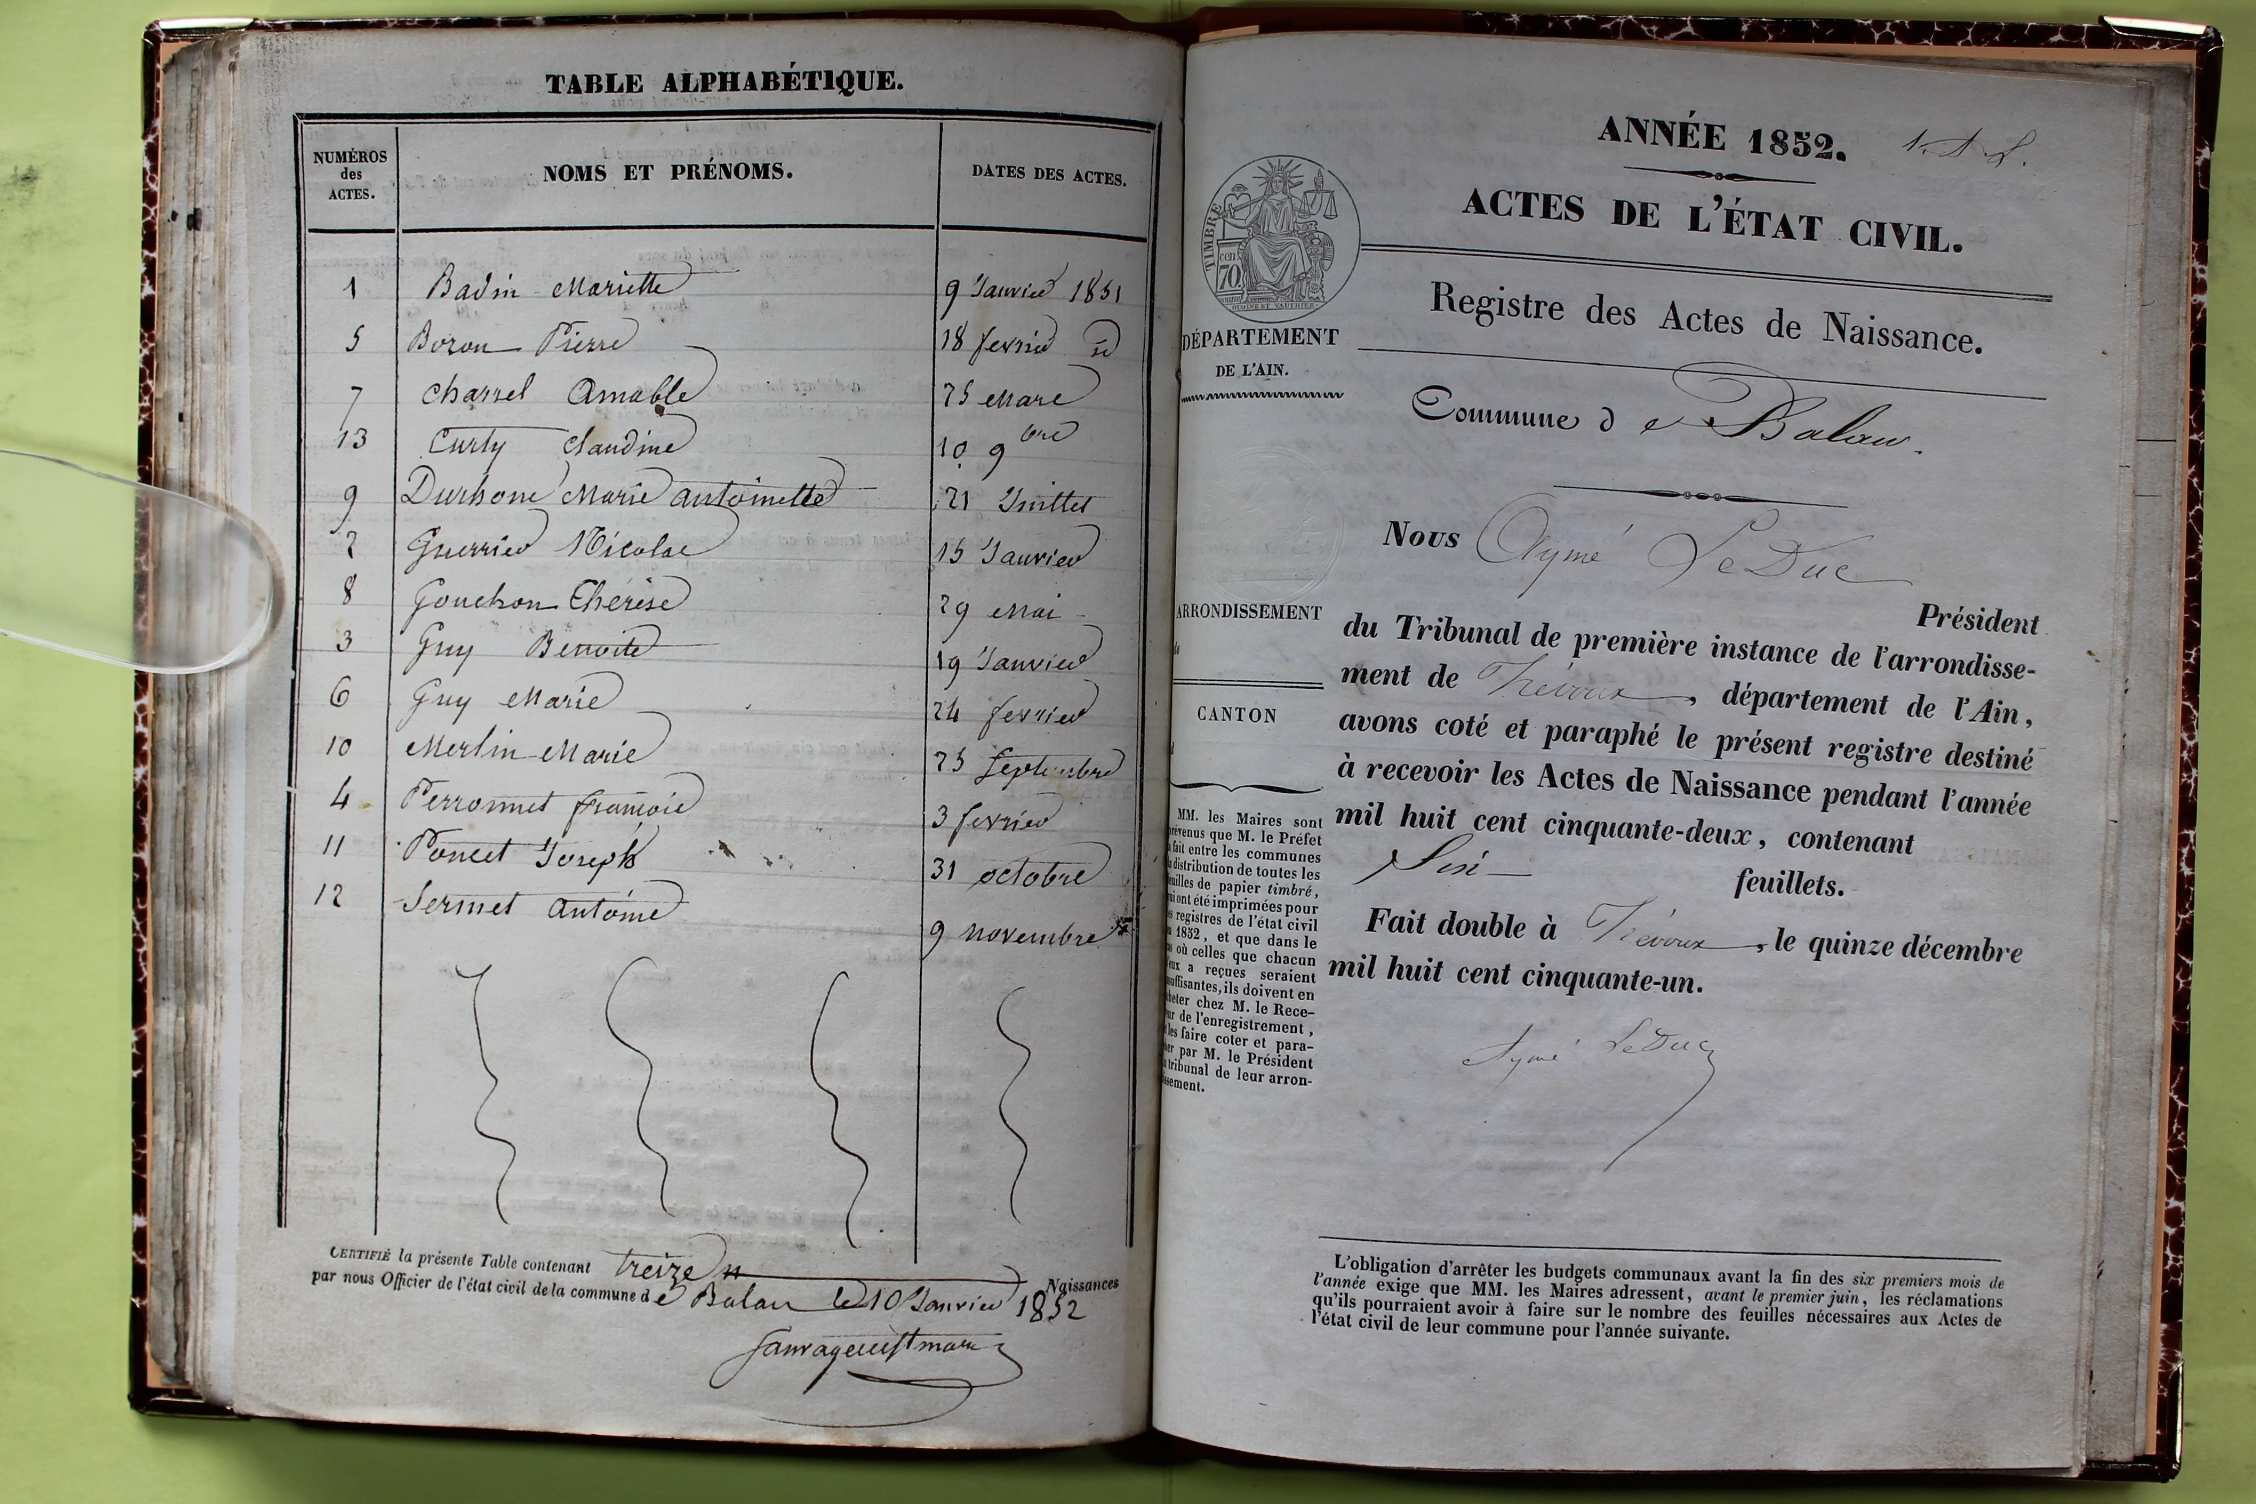 TABLE ALPHABÉTIQUE.
NUMÉROS des ACTES. NOMS ET PRÉNOMS. DATES DES ACTES.
1 Badin Mariette 9 Janvier 1851
5 Bozon Pierre 18 fevrier id
7 Charrel Amable 25 Mars
13 Curty Claudine 10 9bre
9 Durhone Marie antoinette 21 Juillet
2 Guerrier Nicolas 15 Janvier
8 Gouchon Thérèse 29 Mai
3 Guy Benoite 19 Janvier
6 Guy Marie 24 fevrier
10 Merlin Marie 25 Septembre
4 Perronnet françois 3 fevrier
11 Poncet Joseph 31 octobre
12 Sermet antoine 9 novembre
CERTIFIÉ la présente Table contenant treize Naissances
par nous Officier de l'état civil de la commune de Balan le 10 Janvier 1852
ANNÉE 1852. 1. A. L.
ACTES DE L'ÉTAT CIVIL.
TIMBRE
70 cen
Registre des Actes de Naissance.
DÉPARTEMENT
DE L'AIN.
Commune de Balan.
Nous Aymé LeDuc
Président
du Tribunal de première instance de l'arrondisse-
ment de Trévoux, département de l'Ain,
avons coté et paraphé le présent registre destiné
à recevoir les Actes de Naissance pendant l'année
mil huit cent cinquante-deux, contenant
Six feuillets.
Fait double à Trévoux, le quinze décembre
mil huit cent cinquante-un.
Aymé LeDuc
ARRONDISSEMENT
CANTON
MM. les Maires sont
prévenus que M. le Préfet
a fait entre les communes
la distribution de toutes les
feuilles de papier timbré,
qui ont été imprimées pour
les registres de l'état civil
de 1852, et que dans le
cas où celles que chacun
d'eux a reçues seraient
insuffisantes, ils doivent en
acheter chez M. le Rece-
veur de l'enregistrement,
et les faire coter et para-
pher par M. le Président
du tribunal de leur arron-
dissement.
L'obligation d'arrêter les budgets communaux avant la fin des six premiers mois de
l'année exige que MM. les Maires adressent, avant le premier juin, les réclamations
qu'ils pourraient avoir à faire sur le nombre des feuilles nécessaires aux Actes de
l'état civil de leur commune pour l'année suivante.